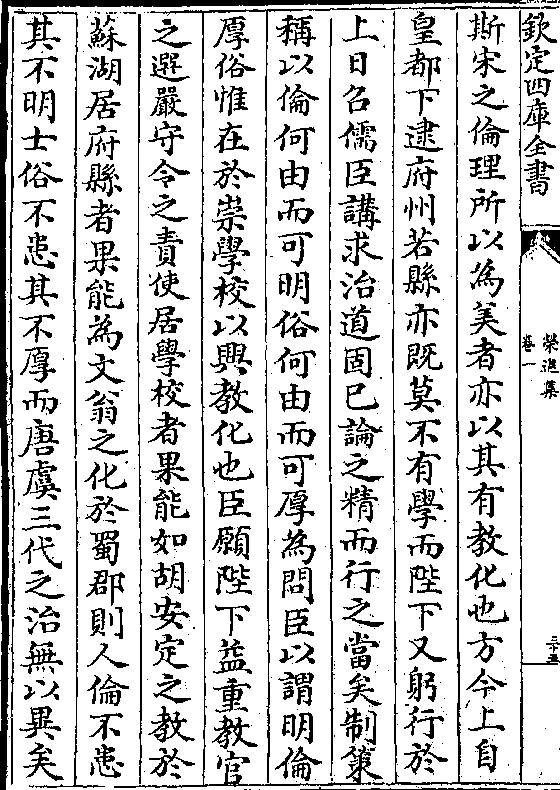 欽定四庫全書
榮進集
卷一
二十五
斯宋之倫理所以為美者亦以其有教化也方今上自
皇都下逮府州若縣亦既莫不有學而陛下又躬行於
上日召儒臣講求治道固已論之精而行之當矣制策
稱以倫何由而可明俗何由而可厚為問臣以謂明倫
厚俗惟在於崇學校以興教化也臣願陛下益重教官
之選嚴守令之責使居學校者果能如胡安定之教於
蘇湖居府縣者果能為文翁之化於蜀郡則人倫不患
其不明士俗不患其不厚而唐虞三代之治無以異矣